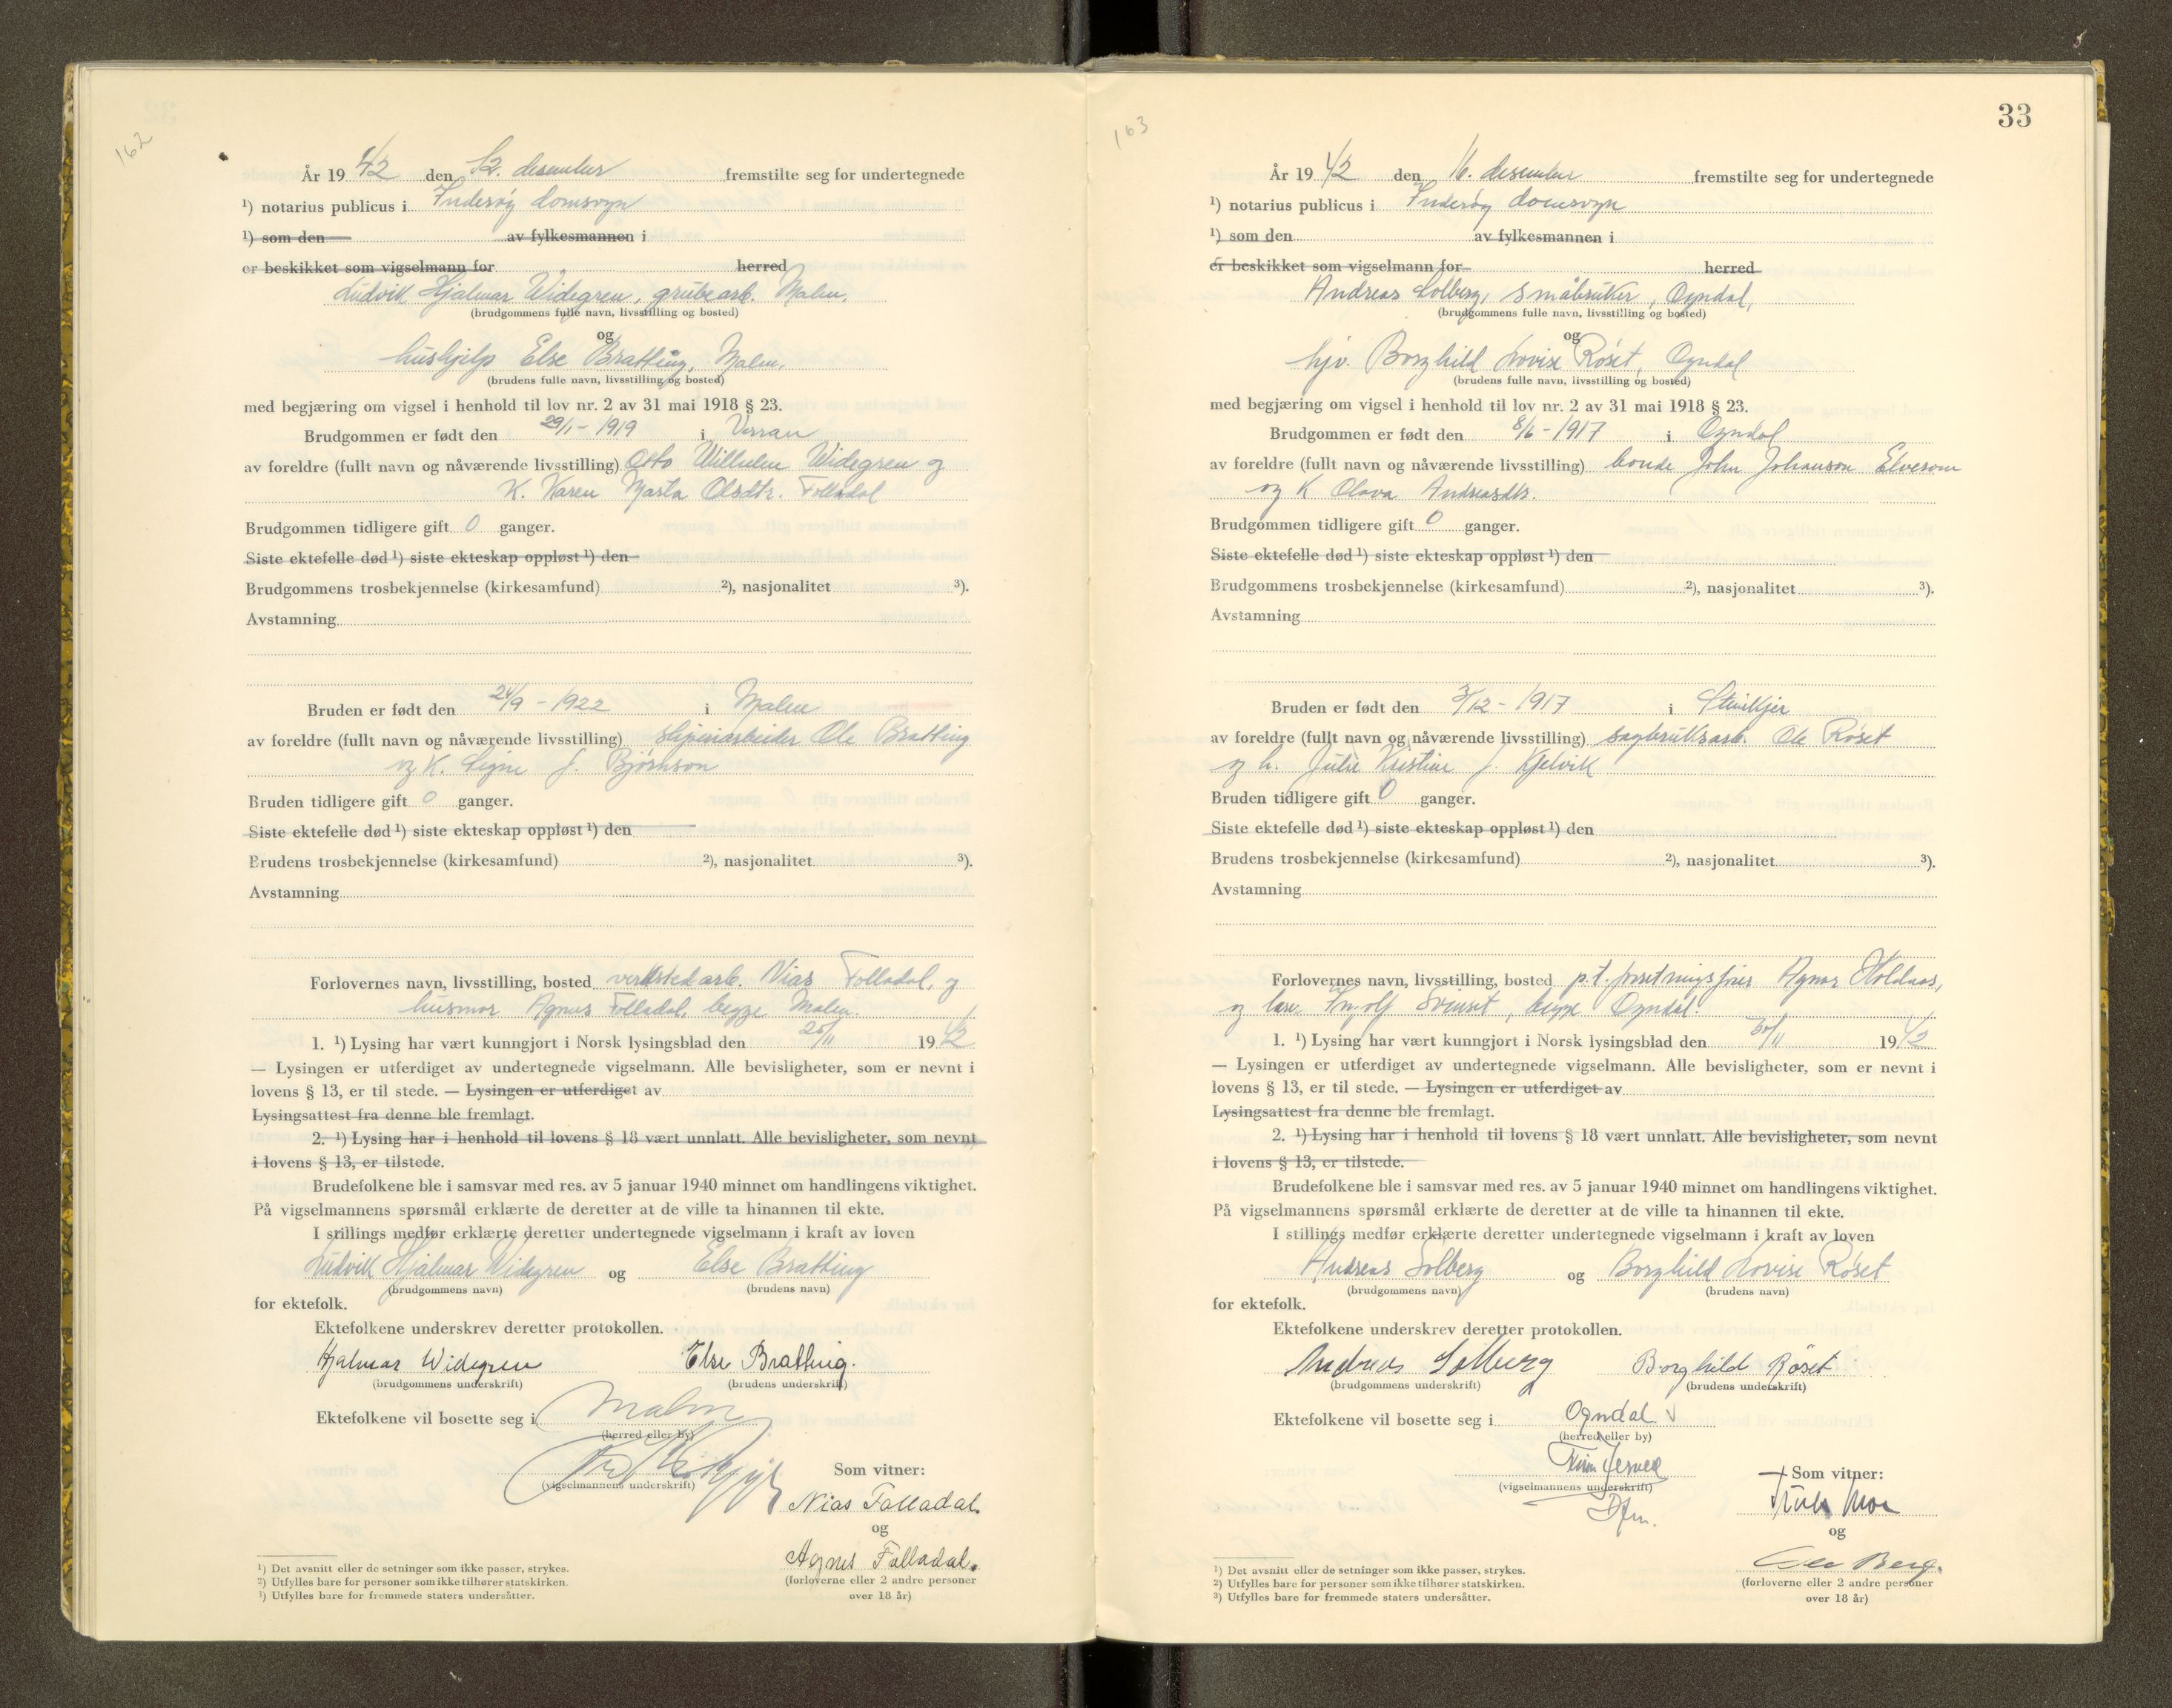 162
År 19 42 den 12. desember fremstilte seg for undertegnede
¹) notarius publicus i Inderøy domsogn
¹) som den av fylkesmannen i
er beskikket som vigselmann for herred
Ludvik Hjalmar Widegren, grubearb. Malm,
(brudgommens fulle navn, livsstilling og bosted)
og
hushjelp Else Bratting, Malm,
(brudens fulle navn, livsstilling og bosted)
med begjæring om vigsel i henhold til lov nr. 2 av 31 mai 1918 § 23.
Brudgommen er født den 29/1 - 1919 i Verran
av foreldre (fullt navn og nåværende livsstilling) Otto Wilhelm Widegren og
K. Karen Marta Olsdtr. Folladal
Brudgommen tidligere gift 0 ganger.
Siste ektefelle død ¹) siste ekteskap oppløst ¹) den
Brudgommens trosbekjennelse (kirkesamfund) ²), nasjonalitet ³).
Avstamning
Bruden er født den 24/9 - 1922 i Malm
av foreldre (fullt navn og nåværende livsstilling) sliperiarbeider Ole Bratting
og K. Signe J. Bjørnson
Bruden tidligere gift 0 ganger.
Siste ektefelle død ¹) siste ekteskap oppløst ¹) den
Brudens trosbekjennelse (kirkesamfund) ²), nasjonalitet ³).
Avstamning
Forlovernes navn, livsstilling, bosted verkstedarb. Nias Folladal, og
husmor Agnes Folladal, begge Malm.
1. ¹) Lysing har vært kunngjort i Norsk lysingsblad den 25/11 19 42
— Lysingen er utferdiget av undertegnede vigselmann. Alle bevisligheter, som er nevnt i
lovens § 13, er til stede. — Lysingen er utferdiget av
Lysingsattest fra denne ble fremlagt.
2. ¹) Lysing har i henhold til lovens § 18 vært unnlatt. Alle bevisligheter, som nevnt
i lovens § 13, er tilstede.
Brudefolkene ble i samsvar med res. av 5 januar 1940 minnet om handlingens viktighet.
På vigselmannens spørsmål erklærte de deretter at de ville ta hinannen til ekte.
I stillings medfør erklærte deretter undertegnede vigselmann i kraft av loven
Ludvik Hjalmar Widegren og Else Bratting
(brudgommens navn) (brudens navn)
for ektefolk.
Ektefolkene underskrev deretter protokollen.
Hjalmar Widegren Else Bratting.
(brudgommens underskrift) (brudens underskrift)
Ektefolkene vil bosette seg i Malm
(herred eller by)
(vigselmannens underskrift)
Som vitner:
Nias Folladal.
og
Agnes Folladal.
(forloverne eller 2 andre personer
over 18 år)
¹) Det avsnitt eller de setninger som ikke passer, strykes.
²) Utfylles bare for personer som ikke tilhører statskirken.
³) Utfylles bare for fremmede staters undersåtter.
163
33
År 19 42 den 16. desember fremstilte seg for undertegnede
¹) notarius publicus i Inderøy domsogn
¹) som den av fylkesmannen i
er beskikket som vigselmann for herred
Andreas Solberg, småbruker, Ogndal,
(brudgommens fulle navn, livsstilling og bosted)
og
hjv. Borghild Lovise Røset, Ogndal
(brudens fulle navn, livsstilling og bosted)
med begjæring om vigsel i henhold til lov nr. 2 av 31 mai 1918 § 23.
Brudgommen er født den 8/6 - 1917 i Ogndal
av foreldre (fullt navn og nåværende livsstilling) bonde John Johanson Elverom
og K Olava Andreasdtr.
Brudgommen tidligere gift 0 ganger.
Siste ektefelle død ¹) siste ekteskap oppløst ¹) den
Brudgommens trosbekjennelse (kirkesamfund) ²), nasjonalitet ³).
Avstamning
Bruden er født den 3/12 - 1917 i Steinkjer
av foreldre (fullt navn og nåværende livsstilling) sagbruksarb. Ole Røset
og h. Julie Kristine J. Kjelvik
Bruden tidligere gift 0 ganger.
Siste ektefelle død ¹) siste ekteskap oppløst ¹) den
Brudens trosbekjennelse (kirkesamfund) ²), nasjonalitet ³).
Avstamning
Forlovernes navn, livsstilling, bosted p.t. forretningsfører Agnar Holdaas,
og Ingolf Svinset, begge Ogndal.
1. ¹) Lysing har vært kunngjort i Norsk lysingsblad den 30/11 19 42
— Lysingen er utferdiget av undertegnede vigselmann. Alle bevisligheter, som er nevnt i
lovens § 13, er til stede. — Lysingen er utferdiget av
Lysingsattest fra denne ble fremlagt.
2. ¹) Lysing har i henhold til lovens § 18 vært unnlatt. Alle bevisligheter, som nevnt
i lovens § 13, er tilstede.
Brudefolkene ble i samsvar med res. av 5 januar 1940 minnet om handlingens viktighet.
På vigselmannens spørsmål erklærte de deretter at de ville ta hinannen til ekte.
I stillings medfør erklærte deretter undertegnede vigselmann i kraft av loven
Andreas Solberg og Borghild Lovise Røset
(brudgommens navn) (brudens navn)
for ektefolk.
Ektefolkene underskrev deretter protokollen.
Andreas Solberg Borghild Røset
(brudgommens underskrift) (brudens underskrift)
Ektefolkene vil bosette seg i Ogndal
(herred eller by)
(vigselmannens underskrift)
Dfm.
Som vitner:
Moe
og
Berg.
(forloverne eller 2 andre personer
over 18 år)
¹) Det avsnitt eller de setninger som ikke passer, strykes.
²) Utfylles bare for personer som ikke tilhører statskirken.
³) Utfylles bare for fremmede staters undersåtter.